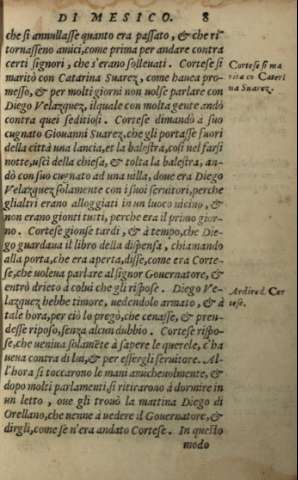 DI MESICO. 8
che si annullasse quanto era passato, & che ri-
tornasseno amici, come prima per andare contra
certi signori, che s'erano solleuati. Cortese si
maritò con Catarina Suarez, come hauea pro-
messo, & per molti giorni non uolse parlare con
Diego Velazquez, ilquale con molta gente andò
contra quei seditiosi. Cortese dimandò a suo
cugnato Giouanni Suarez, che gli portasse fuori
della città una lancia, et la balestra, cosi nel farsi
notte, usci della chiesa, & tolta la balestra, an-
dò con suo cugnato ad una uilla, doue era Diego
Velazquez solamente con i suoi seruitori, perche
gli altri erano alloggiati in un luoco uicino, &
non erano gionti tutti, perche era il primo gior-
no. Cortese gionse tardi, & à tempo, che Die-
go guardaua il libro della dispensa, chiamando
alla porta, che era aperta, disse, come era Corte-
se, che uolena parlare al signor Gouernatore, &
entrò drieto à colui che gli rispose. Diego Ve-
lazquez hebbe timore, uedendolo armato, & à
tale hora, per ciò lo pregò, che cenasse, & pren-
desse riposo, senza alcun dubbio. Cortese rispo-
se, che uenina solamēte à sapere le querele, c'ha
ueua contra di lui, & per essergli seruitore. Al-
l'hora si toccarono le mani amicheuolmente, &
dopo molti parlamenti, si ritirarono à dormire in
un letto, oue gli trouò la mattina Diego di
Orellano, che uenne à uedere il Gouernatore, &
dirgli, come se n'era andato Cortese. In questo
modo
Cortese si ma
rita co Cateri
na Suarez.
Ardire d. Cor
tese.